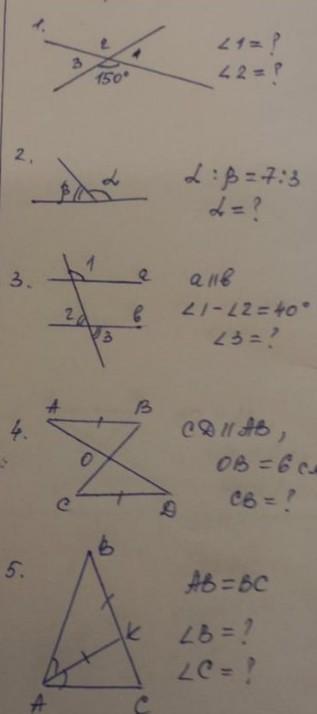 1.
2
3
1
150°
∠1 = ?
∠2 = ?
2.
β
α
α : β = 7:3
α = ?
3.
1
a
2
b
3
a ∥ b
∠1 - ∠2 = 40°
∠3 = ?
4.
A
B
O
C
D
CD ∥ AB,
OB = 6 с
CB = ?
5.
B
K
A
C
AB = BC
∠B = ?
∠C = ?